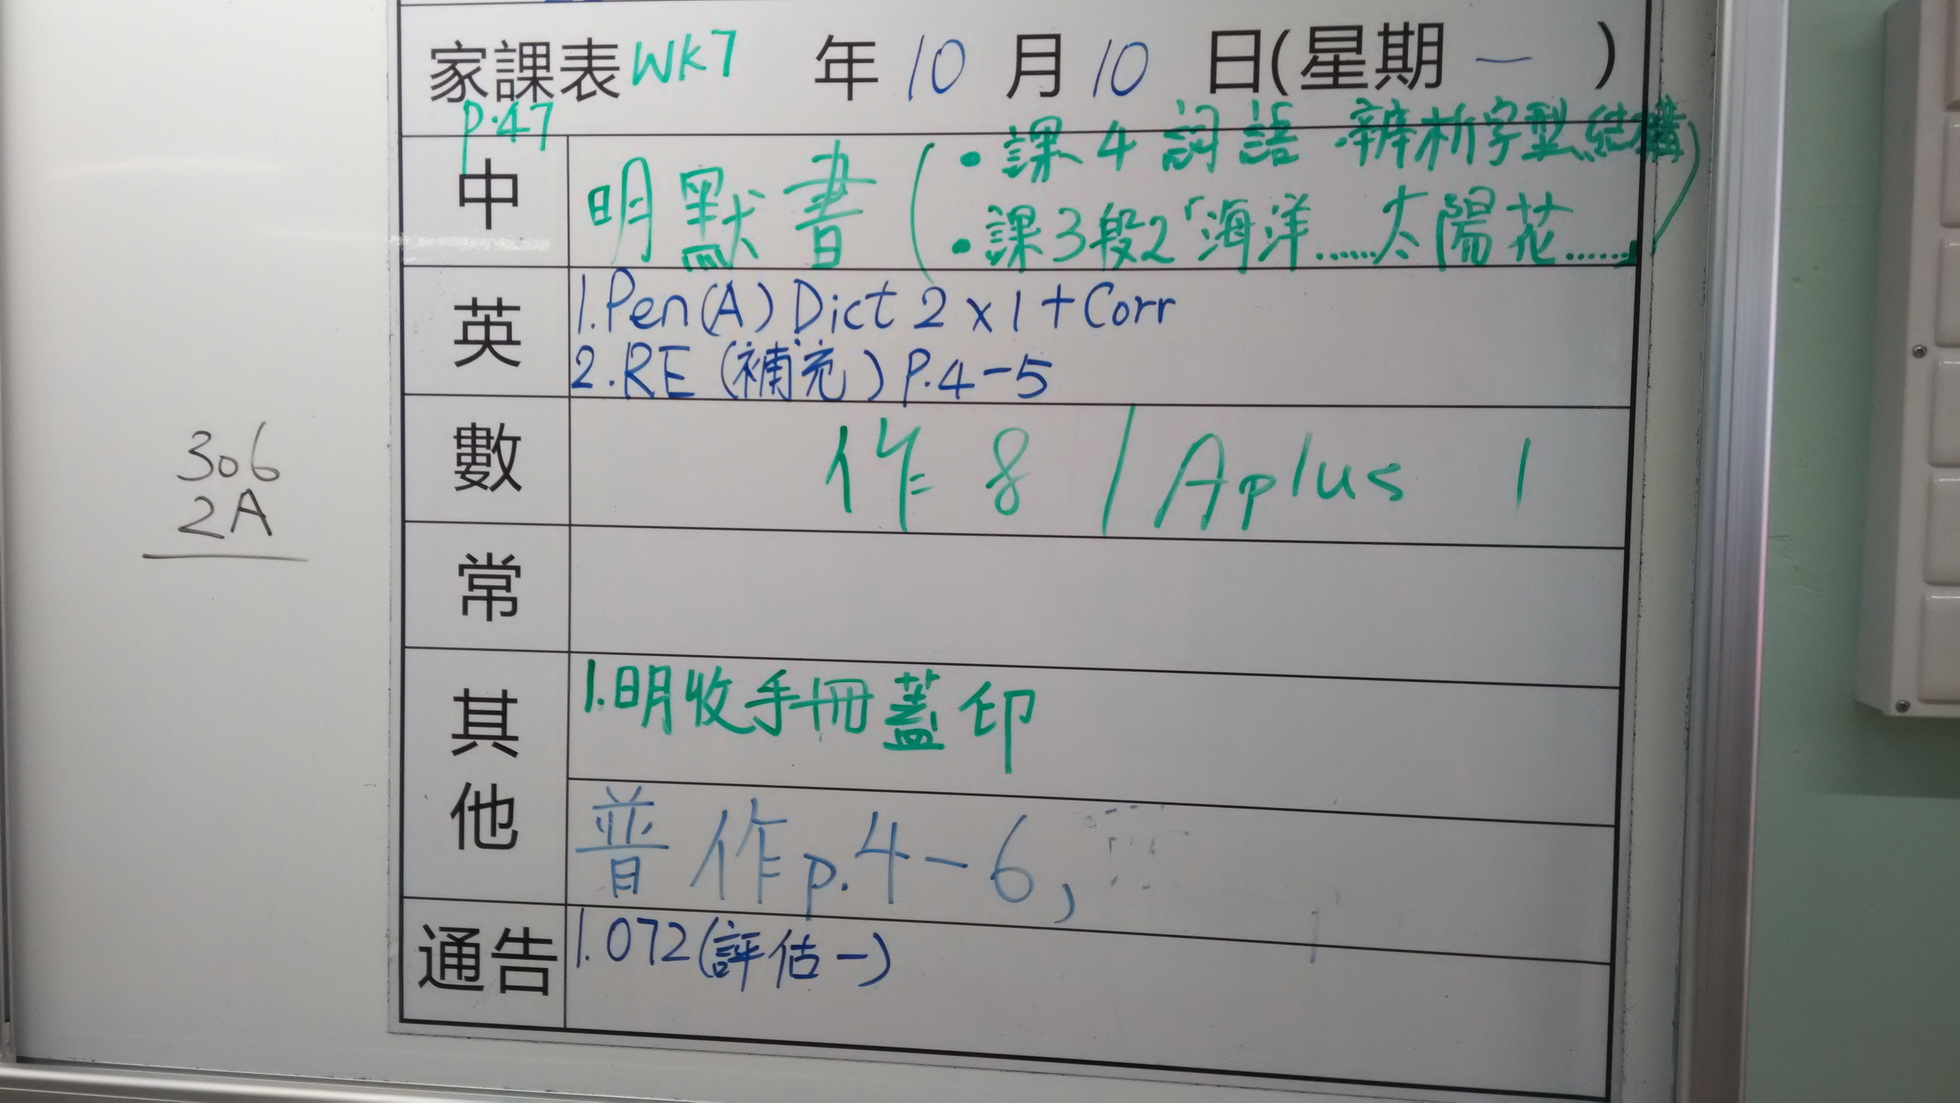 家課表 WK7 年 10 月 10 日(星期 一 )
P.47
中 明默書 ( • 課 4 詞語 辨析字型結構
• 課3段2「海洋......太陽花......」)
英 1. Pen(A) Dict 2 x 1 + Corr
2. RE (補充) P.4-5
數 作 8 / Aplus 1
常
其他 1. 明收手冊蓋印
普作p.4-6,
通告 1. 072(評估一)
306
2A